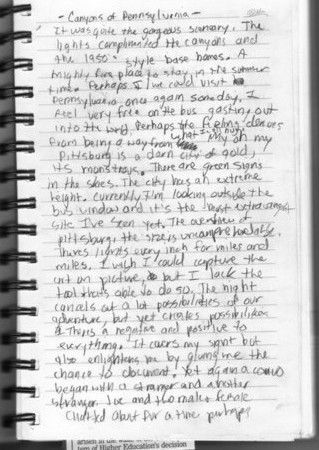 - Canyons of Pennsylvania -
It was quite the gorgeous scenery. The
lights complimented the canyons and
the 1950's style base homes. A
highly fine place to stay in the summer
time. Perhaps I could visit
Pennsylvania once again someday, I
feel very free on the bus gasting out
into the world. Perhaps the feeling derives
from being a way from what I'm
My oh my
Pittsburg is a darn city of gold,
its monstrous. There are green signs
in the skies. The city has an extreme
height. currently I'm looking outside the
bus window and it's the most extravagant
site I've seen yet. The
Pittsburg, the size is uncomprehendable
There's lights every inch for miles and
miles. I wish I could capture the
on picture, but I lack the
tool that's able to do so. The night
cancels out a lot possibilities of our
adventure, but yet creates possibilities
There's a negative and positive to
everything. It covers my sight but
also enlightens me by giving me the
chance to document. Yet again a
began with a stranger and another
stranger. Joe and the male & female
chatted about for a time perhaps
tem of Higher Education's decision